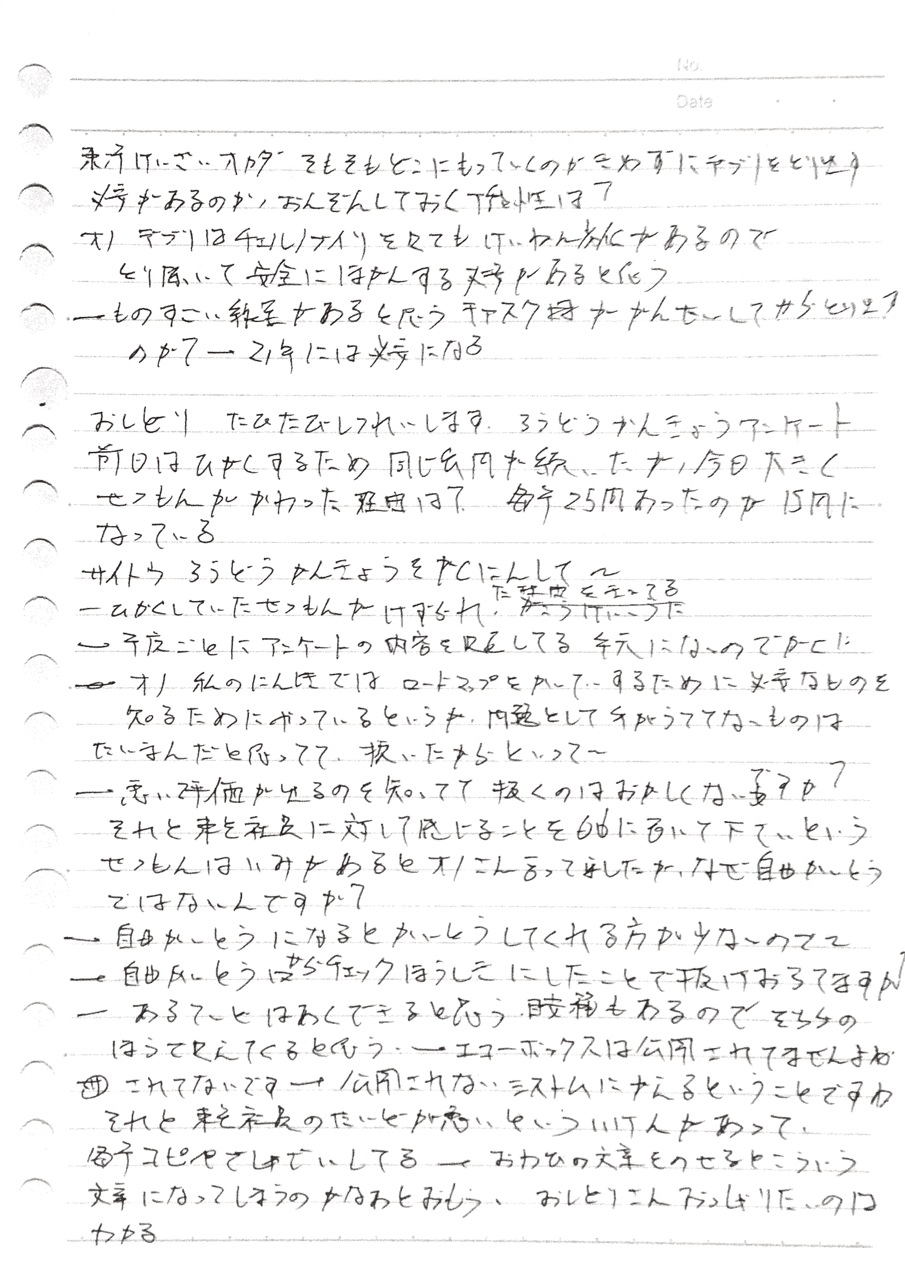 No.
Date
東洋けいざいオカダ そもそもどこにもっていくのかきめずにデブリをとり出す
必要があるのか、おんぞんしておく可能性は?
オノ デブリはチェルノブイリを見ても けい
とり除いて安全にほかんする必要があると思う
ーものすごい線量があると思う キャスク かんせいしてからとり出す
のか?ー21年には必要になる
おしどり たびたびしつれいします. ろうどうかんきょうアンケート
前日はひかくするため同じ質問が続いたが、今日大きく
せつもんがかわった理由は? 毎年25問あったのが15問に
なっている
サイトウ ろうどうかんきょうをかくにんして〜
ーひかくしていたせつもんがけずられ、
た理由をきいてる
ー年度ごとにアンケートの内容を見直してる 手元にないのでかくに
ーオノ 私のにんしきでは ロードマップをかいていするために必要なものを
知るためにやっているというか、問題として手がうててないものは
たいまんだと思ってて、抜いたからといって〜
ー悪い評価が出るのを知ってて抜くのはおかしくないですか?
それと東電社員に対して感じることを自由に書いて下さいという
せつもんはいみがあるとオノさん言ってましたが、なぜ自由かいとう
ではないんですか?
ー自由かいとうになるとかいとうしてくれる方が少ないので〜
ー自由かいとうからチェックほうしきにしたことで抜けおちてますが?
ーあるていどはあくできると思う. 職種もあるのでそちらの
ほうで見えてくると思う. ーエコーボックスは公開されてませんよね
されてないですー公開されないシステムにかえるということですね
それと東電社員のたいどが悪いといういけんがあって、
毎年コピペでしゃざいしてるーおわびの文章をのせるとこういう
文章になってしまうのかなあとおもう、おしどりさんおっしゃりたいのは
わかる